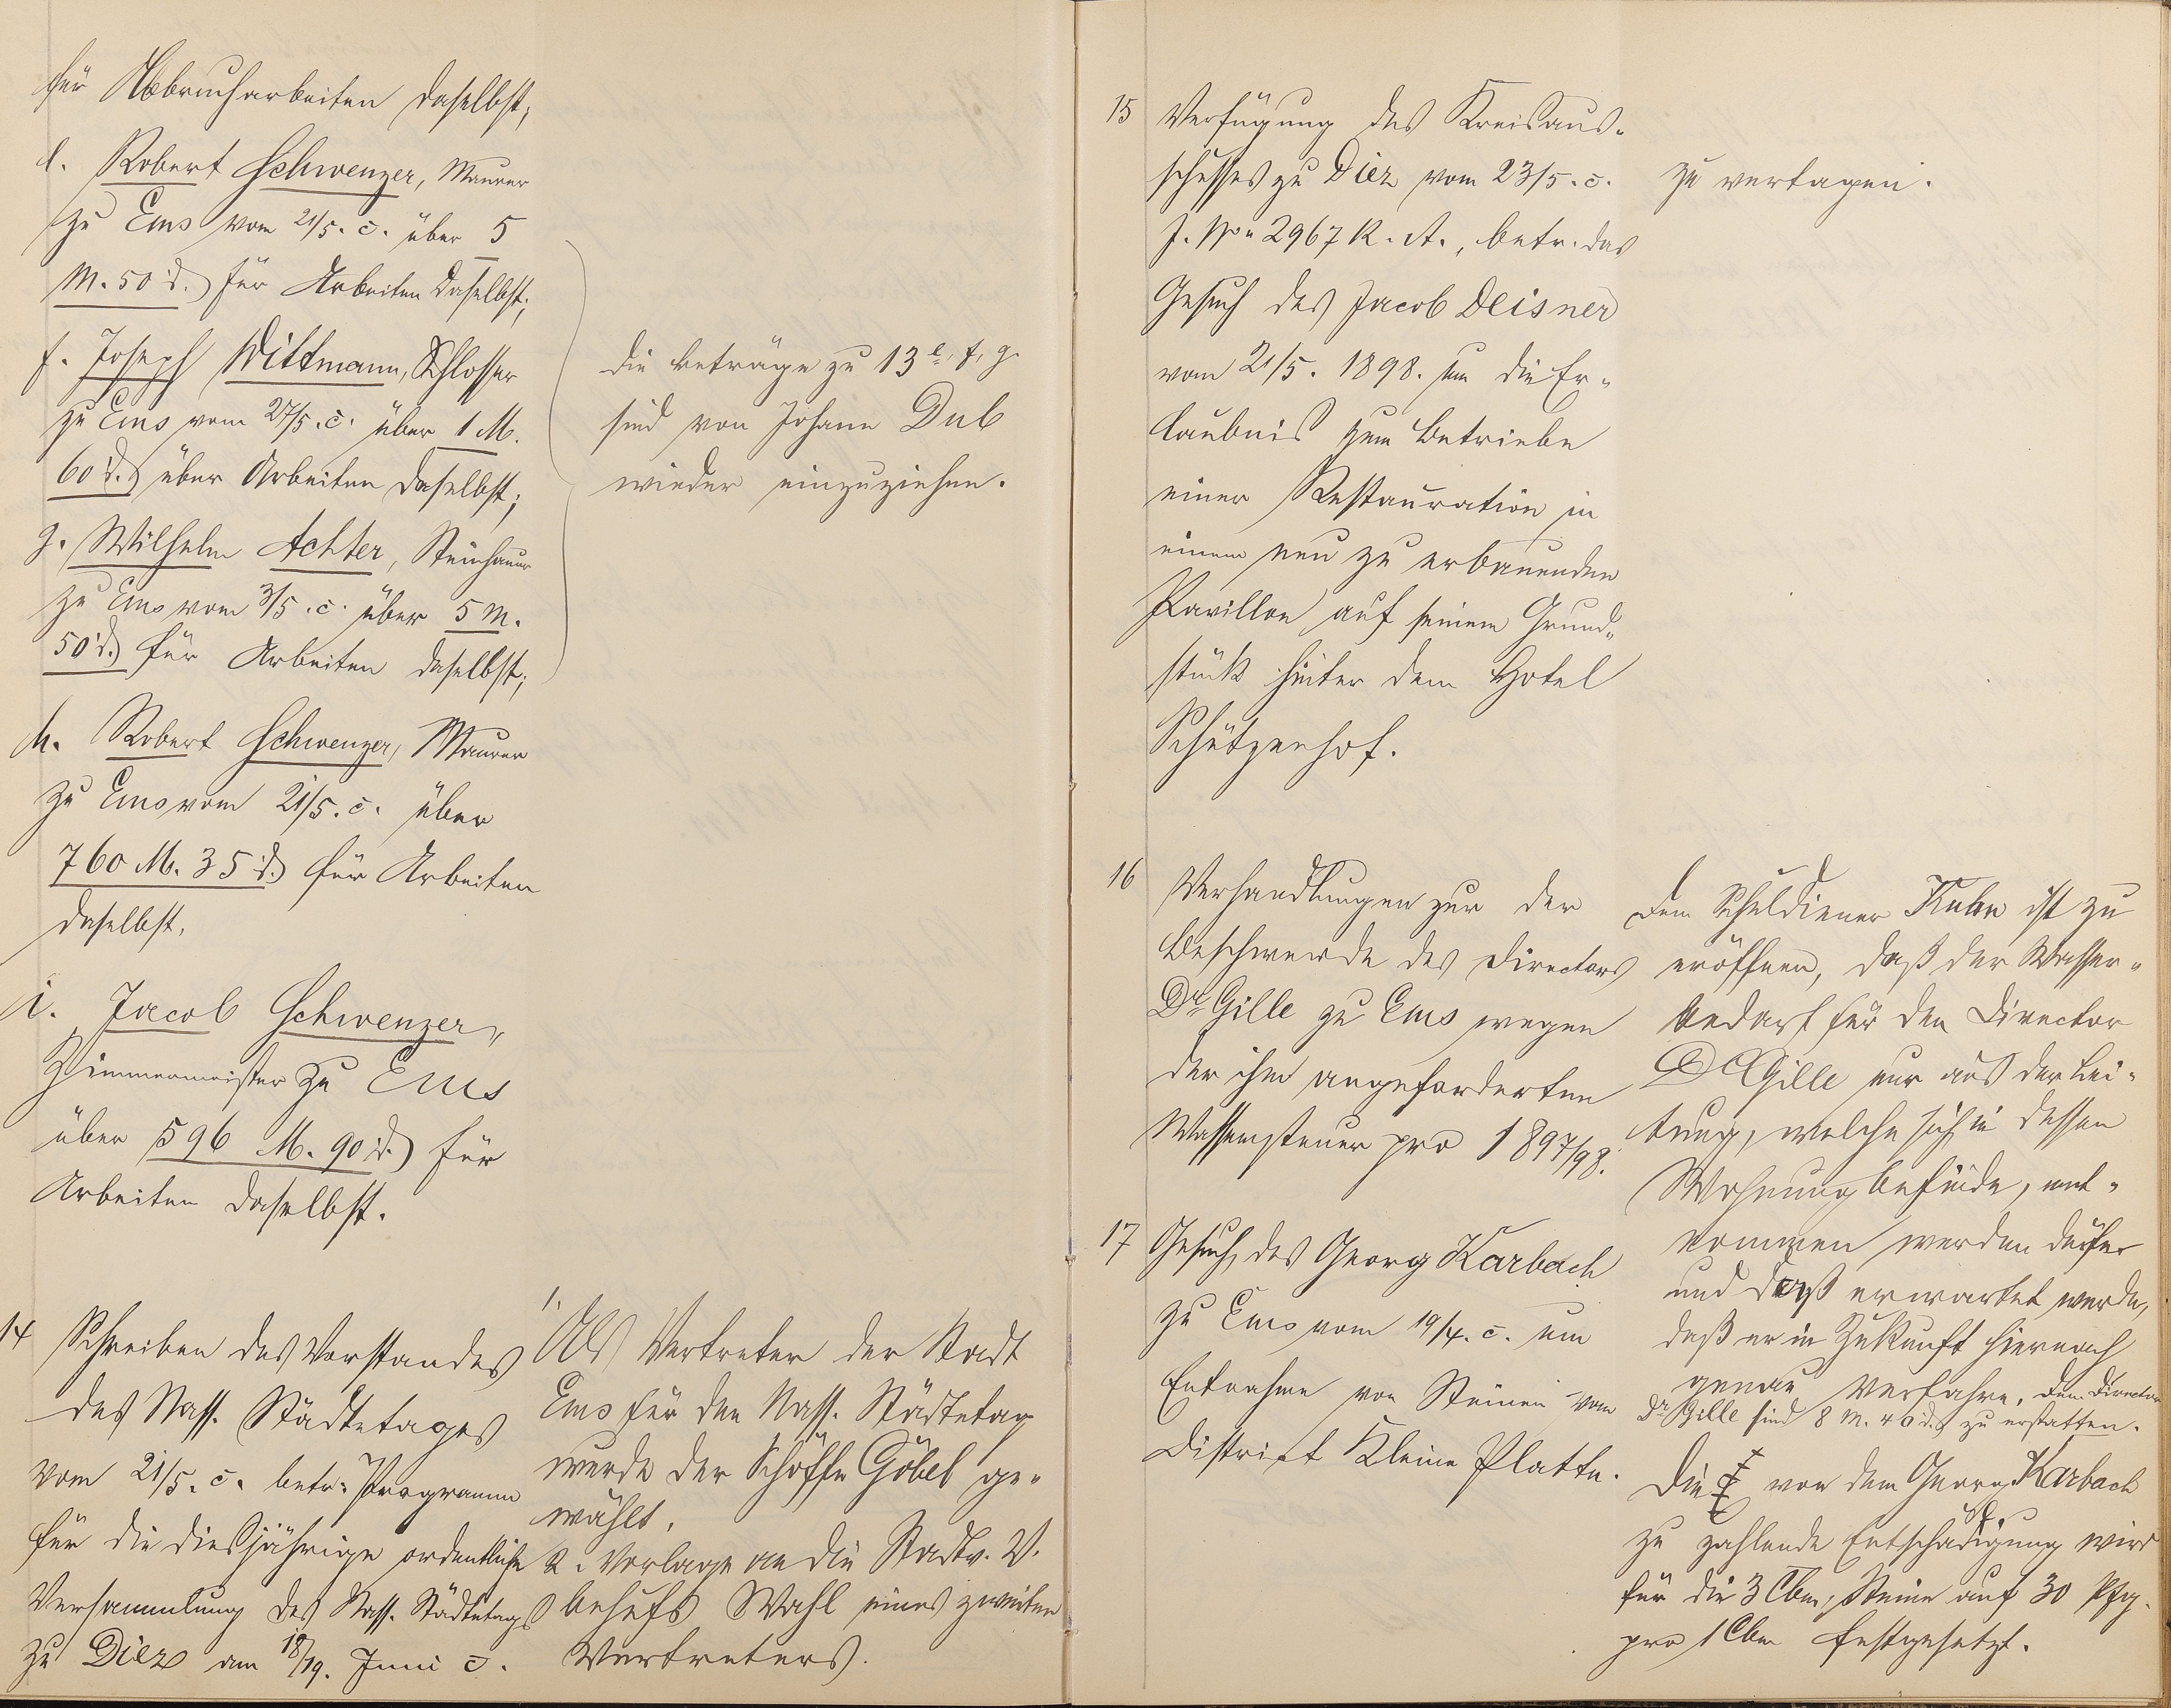 für Abbrucharbeiten daselbst;
e. Robert Schwenzer, Maurer
zu Ems vom 21/5. c. über 5
M. 50 d. für Arbeiten daselbst;
f. Joseph Wittmann, Schlosser
zu Ems vom 27/5. c. über 1 M.
60 d. über Arbeiten daselbst;
g. Wilhelm Achter, Steinhauer
zu Ems vom 3/5. c. über 5 M.
50 d. für Arbeiten daselbst;
h. Robert Schwenzer, Maurer
zu Ems vom 21/5. c. über
760 M. 35 d. für Arbeiten
daselbst.
i. Jacob Schwenzer,
Zimmermeister zu Ems
über 596 M. 90 d. für
Arbeiten daselbst.
die Beträge zu 13 e, f, g.
sind von Johann Dub
wieder einzuziehen.
14 Schreiben des Vorstandes
des Nass. Städtetages
vom 21/5. c. betr. Programm
für die diesjährige ordentliche
Versammlung des Nass. Städtetags
zu Diez am 18/19. Juni c.
1. Als Vertreter der Stadt
Ems für den Nass. Städtetag
wurde der Schöffe Göbel ge-
wählt.
2. Vorlage an die Stadtv. V.
behufs Wahl eines zweiten
Vertreters.
15 Verfügung des Kreisaus-
schusses zu Diez vom 23/5. c.
J. No 2967 K. A., betr. das
Gesuch des Jacob Deisner
vom 21/5. 1898. um die Er-
laubnis zum Betriebe
einer Restauration in
einem neu zu erbauenden
Pavillon auf seinem Grund-
stück hinter dem Hotel
Schützenhof.
zu vertagen.
16 Verhandlungen zur der
Beschwerde des Directors
Dr Gille zu Ems wegen
der ihm angeforderten
Wassersteuer pro 1897/98.
Dem Schuldiener Kuhn ist zu
eröffnen, daß der Wasser-
bedarf für den Director
Dr Gille nur aus der Lei-
tung, welche sich in dessen
Wohnung befinde, ent-
nommen werden dürfe
und daß erwartet werde,
daß er in Zukunft hiernach
genau verfahre. Dem Director
Dr Gille sind 8 M. 40 d. zu erstatten.
17 Gesuch des Georg Karbach
zu Ems vom 19/4. c. um
Entnahme von Steinen vom
District Kleine Platte.
Die von dem Georg Karbach
zu zahlende Entschädigung wird
für die 3 Cbm. Steine auf 30 Pfg.
pro 1 Cbm festgesetzt.